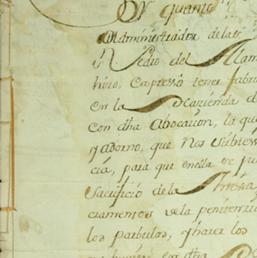 Por quanto
Administrador de las
Predio del Llam
hivo, Expresso tener fabri
en la Hacienda d
con dha Abocacion, la qu
y adorno, que nos
cia, para que en ella se
Sacrificio de la Missa
ciamentos de la penitencia
los parbulos, y haser los
con dha